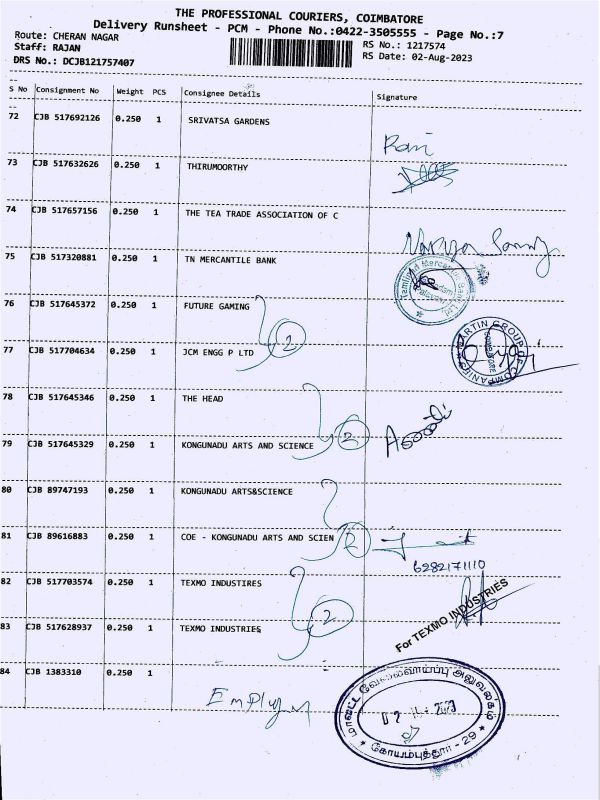 THE PROFESSIONAL COURIERS, COIMBATORE
Delivery Runsheet - PCM - Phone No.:0422-3505555 - Page No.:7
Route: CHERAN NAGAR RS No.: 1217574
Staff: RAJAN RS Date: 02-Aug-2023
DRS No.: DCJB121757407
S No Consignment No Weight PCS Consignee Details Signature
72 CJB 517692126 0.250 1 SRIVATSA GARDENS
Rani
73 CJB 517632626 0.250 1 THIRUMOORTHY
74 CJB 517657156 0.250 1 THE TEA TRADE ASSOCIATION OF C
75 CJB 517320881 0.250 1 TN MERCANTILE BANK
Tamilnad Mercantile Bank Ltd.
76 CJB 517645372 0.250 1 FUTURE GAMING
2
77 CJB 517704634 0.250 1 JCM ENGG P LTD
MARTIN GROUP OF COMPANIES
COIMBATORE
78 CJB 517645346 0.250 1 THE HEAD
2
79 CJB 517645329 0.250 1 KONGUNADU ARTS AND SCIENCE
80 CJB 89747193 0.250 1 KONGUNADU ARTS&SCIENCE
81 CJB 89616883 0.250 1 COE - KONGUNADU ARTS AND SCIEN 2
6282171110
82 CJB 517703574 0.250 1 TEXMO INDUSTIRES
2
For TEXMO INDUSTRIES
83 CJB 517628937 0.250 1 TEXMO INDUSTRIES
84 CJB 1383310 0.250 1
மாவட்ட வேலைவாய்ப்பு அலுவலகம்
கோயம்புத்தூர் - 29